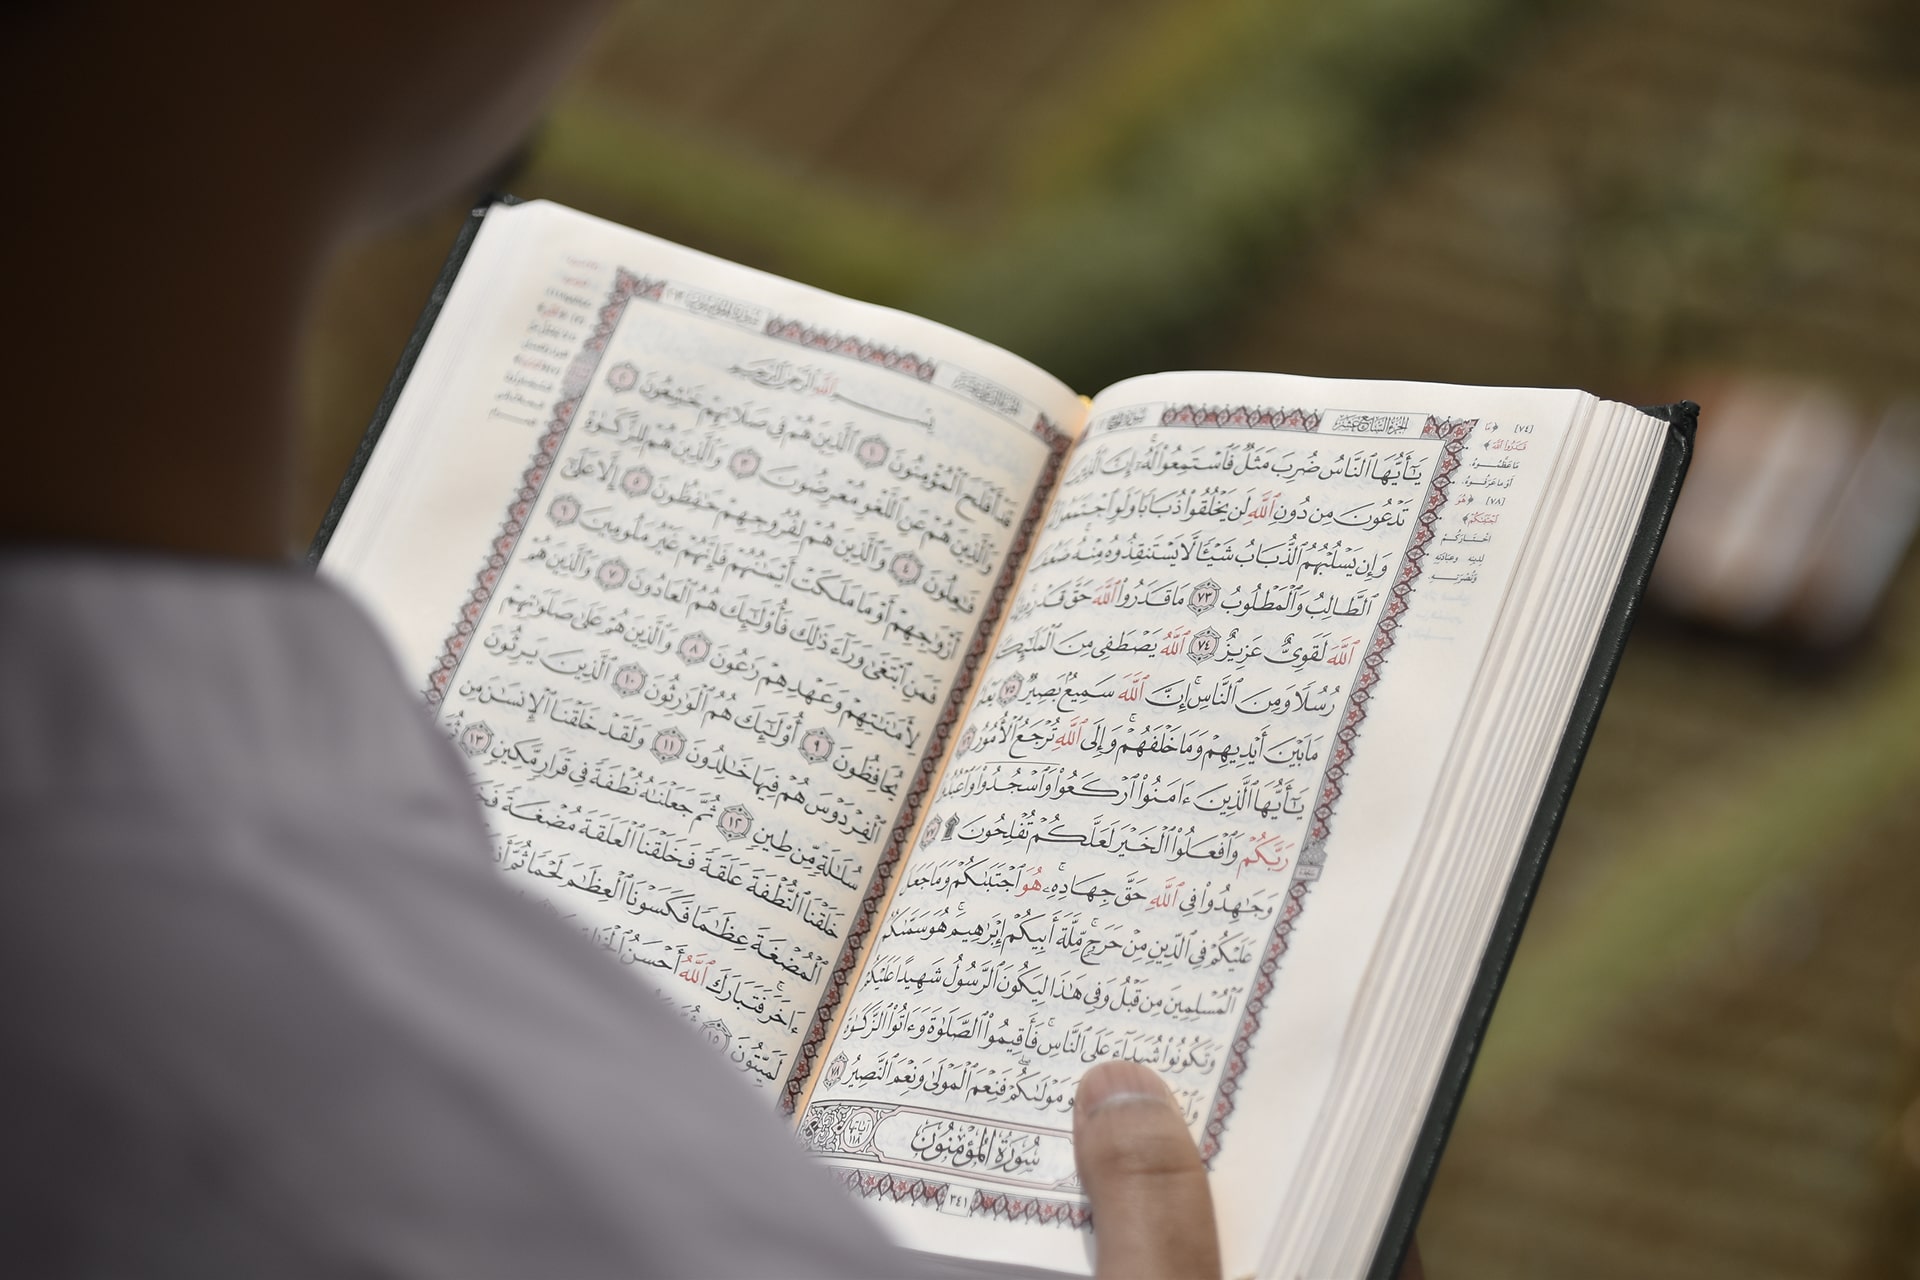 الجزء السابع عشر
يَـٰٓأَيُّهَا ٱلنَّاسُ ضُرِبَ مَثَلٌ فَٱسْتَمِعُوا۟ لَهُۥٓ ۚ إِنَّ ٱلَّذِينَ
تَدْعُونَ مِن دُونِ ٱللَّهِ لَن يَخْلُقُوا۟ ذُبَابًا وَلَوِ ٱجْتَمَعُوا۟
وَإِن يَسْلُبْهُمُ ٱلذُّبَابُ شَيْـًٔا لَّا يَسْتَنقِذُوهُ مِنْهُ ۚ ضَعُفَ
ٱلطَّالِبُ وَٱلْمَطْلُوبُ ٧٣ مَا قَدَرُوا۟ ٱللَّهَ حَقَّ قَدْرِهِۦٓ ۗ إِنَّ
ٱللَّهَ لَقَوِىٌّ عَزِيزٌ ٧٤ ٱللَّهُ يَصْطَفِى مِنَ ٱلْمَلَـٰٓئِكَةِ
رُسُلًا وَمِنَ ٱلنَّاسِ ۚ إِنَّ ٱللَّهَ سَمِيعٌۢ بَصِيرٌ ٧٥ يَعْلَمُ
مَا بَيْنَ أَيْدِيهِمْ وَمَا خَلْفَهُمْ ۗ وَإِلَى ٱللَّهِ تُرْجَعُ ٱلْأُمُورُ ٧٦
يَـٰٓأَيُّهَا ٱلَّذِينَ ءَامَنُوا۟ ٱرْكَعُوا۟ وَٱسْجُدُوا۟ وَٱعْبُدُوا۟
رَبَّكُمْ وَٱفْعَلُوا۟ ٱلْخَيْرَ لَعَلَّكُمْ تُفْلِحُونَ ۩ ٧٧
وَجَـٰهِدُوا۟ فِى ٱللَّهِ حَقَّ جِهَادِهِۦ ۚ هُوَ ٱجْتَبَىٰكُمْ وَمَا جَعَلَ
عَلَيْكُمْ فِى ٱلدِّينِ مِنْ حَرَجٍ ۚ مِّلَّةَ أَبِيكُمْ إِبْرَٰهِيمَ ۚ هُوَ سَمَّىٰكُمُ
ٱلْمُسْلِمِينَ مِن قَبْلُ وَفِى هَـٰذَا لِيَكُونَ ٱلرَّسُولُ شَهِيدًا عَلَيْكُمْ
وَتَكُونُوا۟ شُهَدَآءَ عَلَى ٱلنَّاسِ ۚ فَأَقِيمُوا۟ ٱلصَّلَوٰةَ وَءَاتُوا۟ ٱلزَّكَوٰةَ
مَوْلَىٰكُمْ ۖ فَنِعْمَ ٱلْمَوْلَىٰ وَنِعْمَ ٱلنَّصِيرُ ٧٨
سُورَةُ المُؤْمِنُونَ
آياتها ١١٨
٣٤١
[٧٤] ﴿مَا
قَدَرُوا۟ ٱللَّهَ﴾
مَا عَظَّمُوهُ،
أَوْ مَا عَرَفُوهُ.
[٧٨] ﴿هُوَ
ٱجْتَبَىٰكُمْ﴾
اخْتَارَكُمْ
لِدِينِهِ وَعِبَادَتِهِ
وَنُصْرَتِهِ.
بِسْمِ ٱللَّهِ ٱلرَّحْمَـٰنِ ٱلرَّحِيمِ
قَدْ أَفْلَحَ ٱلْمُؤْمِنُونَ ١ ٱلَّذِينَ هُمْ فِى صَلَاتِهِمْ خَـٰشِعُونَ ٢
وَٱلَّذِينَ هُمْ عَنِ ٱللَّغْوِ مُعْرِضُونَ ٣ وَٱلَّذِينَ هُمْ لِلزَّكَوٰةِ
فَـٰعِلُونَ ٤ وَٱلَّذِينَ هُمْ لِفُرُوجِهِمْ حَـٰفِظُونَ ٥ إِلَّا عَلَىٰٓ
أَزْوَٰجِهِمْ أَوْ مَا مَلَكَتْ أَيْمَـٰنُهُمْ فَإِنَّهُمْ غَيْرُ مَلُومِينَ ٦
فَمَنِ ٱبْتَغَىٰ وَرَآءَ ذَٰلِكَ فَأُو۟لَـٰٓئِكَ هُمُ ٱلْعَادُونَ ٧ وَٱلَّذِينَ هُمْ
لِأَمَـٰنَـٰتِهِمْ وَعَهْدِهِمْ رَٰعُونَ ٨ وَٱلَّذِينَ هُمْ عَلَىٰ صَلَوَٰتِهِمْ
يُحَافِظُونَ ٩ أُو۟لَـٰٓئِكَ هُمُ ٱلْوَٰرِثُونَ ١٠ ٱلَّذِينَ يَرِثُونَ
ٱلْفِرْدَوْسَ هُمْ فِيهَا خَـٰلِدُونَ ١١ وَلَقَدْ خَلَقْنَا ٱلْإِنسَـٰنَ مِن
سُلَـٰلَةٍ مِّن طِينٍ ١٢ ثُمَّ جَعَلْنَـٰهُ نُطْفَةً فِى قَرَارٍ مَّكِينٍ ١٣ ثُمَّ
خَلَقْنَا ٱلنُّطْفَةَ عَلَقَةً فَخَلَقْنَا ٱلْعَلَقَةَ مُضْغَةً
ٱلْمُضْغَةَ عِظَـٰمًا فَكَسَوْنَا ٱلْعِظَـٰمَ لَحْمًا ثُمَّ
ءَاخَرَ ۚ فَتَبَارَكَ ٱللَّهُ أَحْسَنُ
لَمَيِّتُونَ ١٥